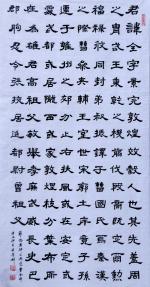 君諱全字景完敦煌效穀人也其先蓋周
之胄武王秉乾之機翦伐殷商既定爾勳
福祿攸同封弟叔振鐸于曹國因氏焉秦漢
之際曹參夾輔王室世宗廓土斥竟子孫
遷于雍州之郊分止右扶風或在安定或
在為雄君高祖父敏舉孝廉武威長史巴
郡朐忍令張掖居延都尉曾祖父